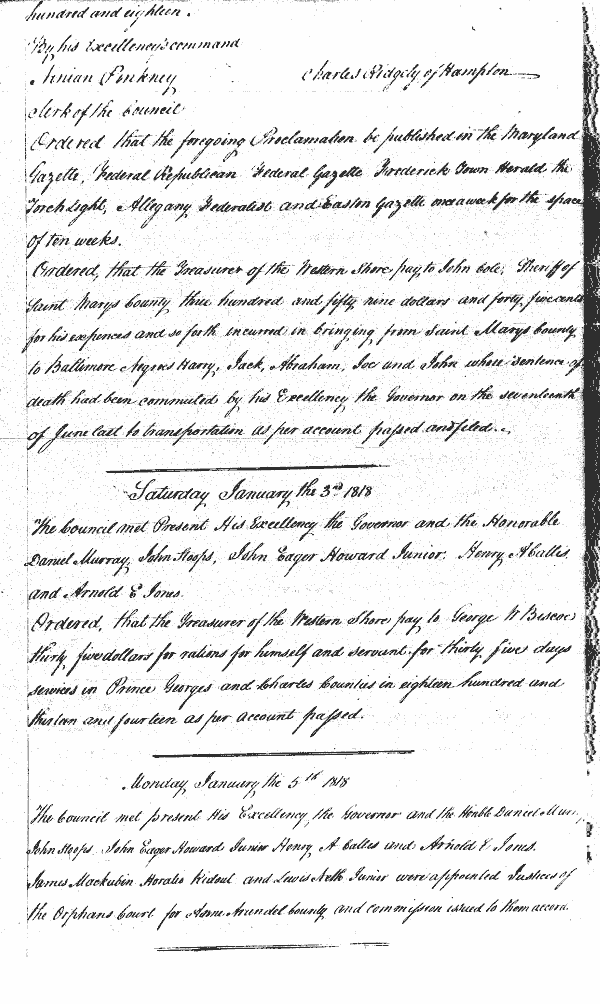 hundred and eighteen.
By his Excellency's command
Ninian Pinkney Charles Ridgely of Hampton
Clerk of the Council
Ordered that the foregoing Proclamation be published in the Maryland
Gazette, Federal Republican Federal Gazette Frederick Town Herald the
Torch Light, Allegany Federalist and Easton Gazette once a week for the space
of ten weeks.
Ordered, that the Treasurer of the Western Shore pay to John Cole, Sheriff of
Saint Marys County three hundred and fifty nine dollars and forty five cents
for his expences and so forth incurred in bringing from Saint Marys County
to Baltimore Negroes Harry, Jack, Abraham, Joe and John whose sentence of
death had been commuted by his Excellency the Governor on the seventeenth
of June last to transportation as per account passed and filed.
Saturday January the 3rd 1818
The Council met Present His Excellency the Governor and the Honorable
Daniel Murray, John Stoops, John Eager Howard Junior, Henry A Callis
and Arnold E Jones.
Ordered, that the Treasurer of the Western Shore pay to George W Biscoe
thirty five dollars for rations for himself and servant for thirty five days
services in Prince Georges and Charles Counties in eighteen hundred and
thirteen and fourteen as per account passed.
Monday January the 5th 1818
The Council met present His Excellency the Governor and the Honble Daniel Murray,
John Stoops, John Eager Howard Junior Henry A Callis and Arnold E. Jones.
James Mackubin Horatio Ridout and Lewis Neth Junior were appointed Justices of
the Orphans Court for Anne Arundel County and commission issued to them accord.